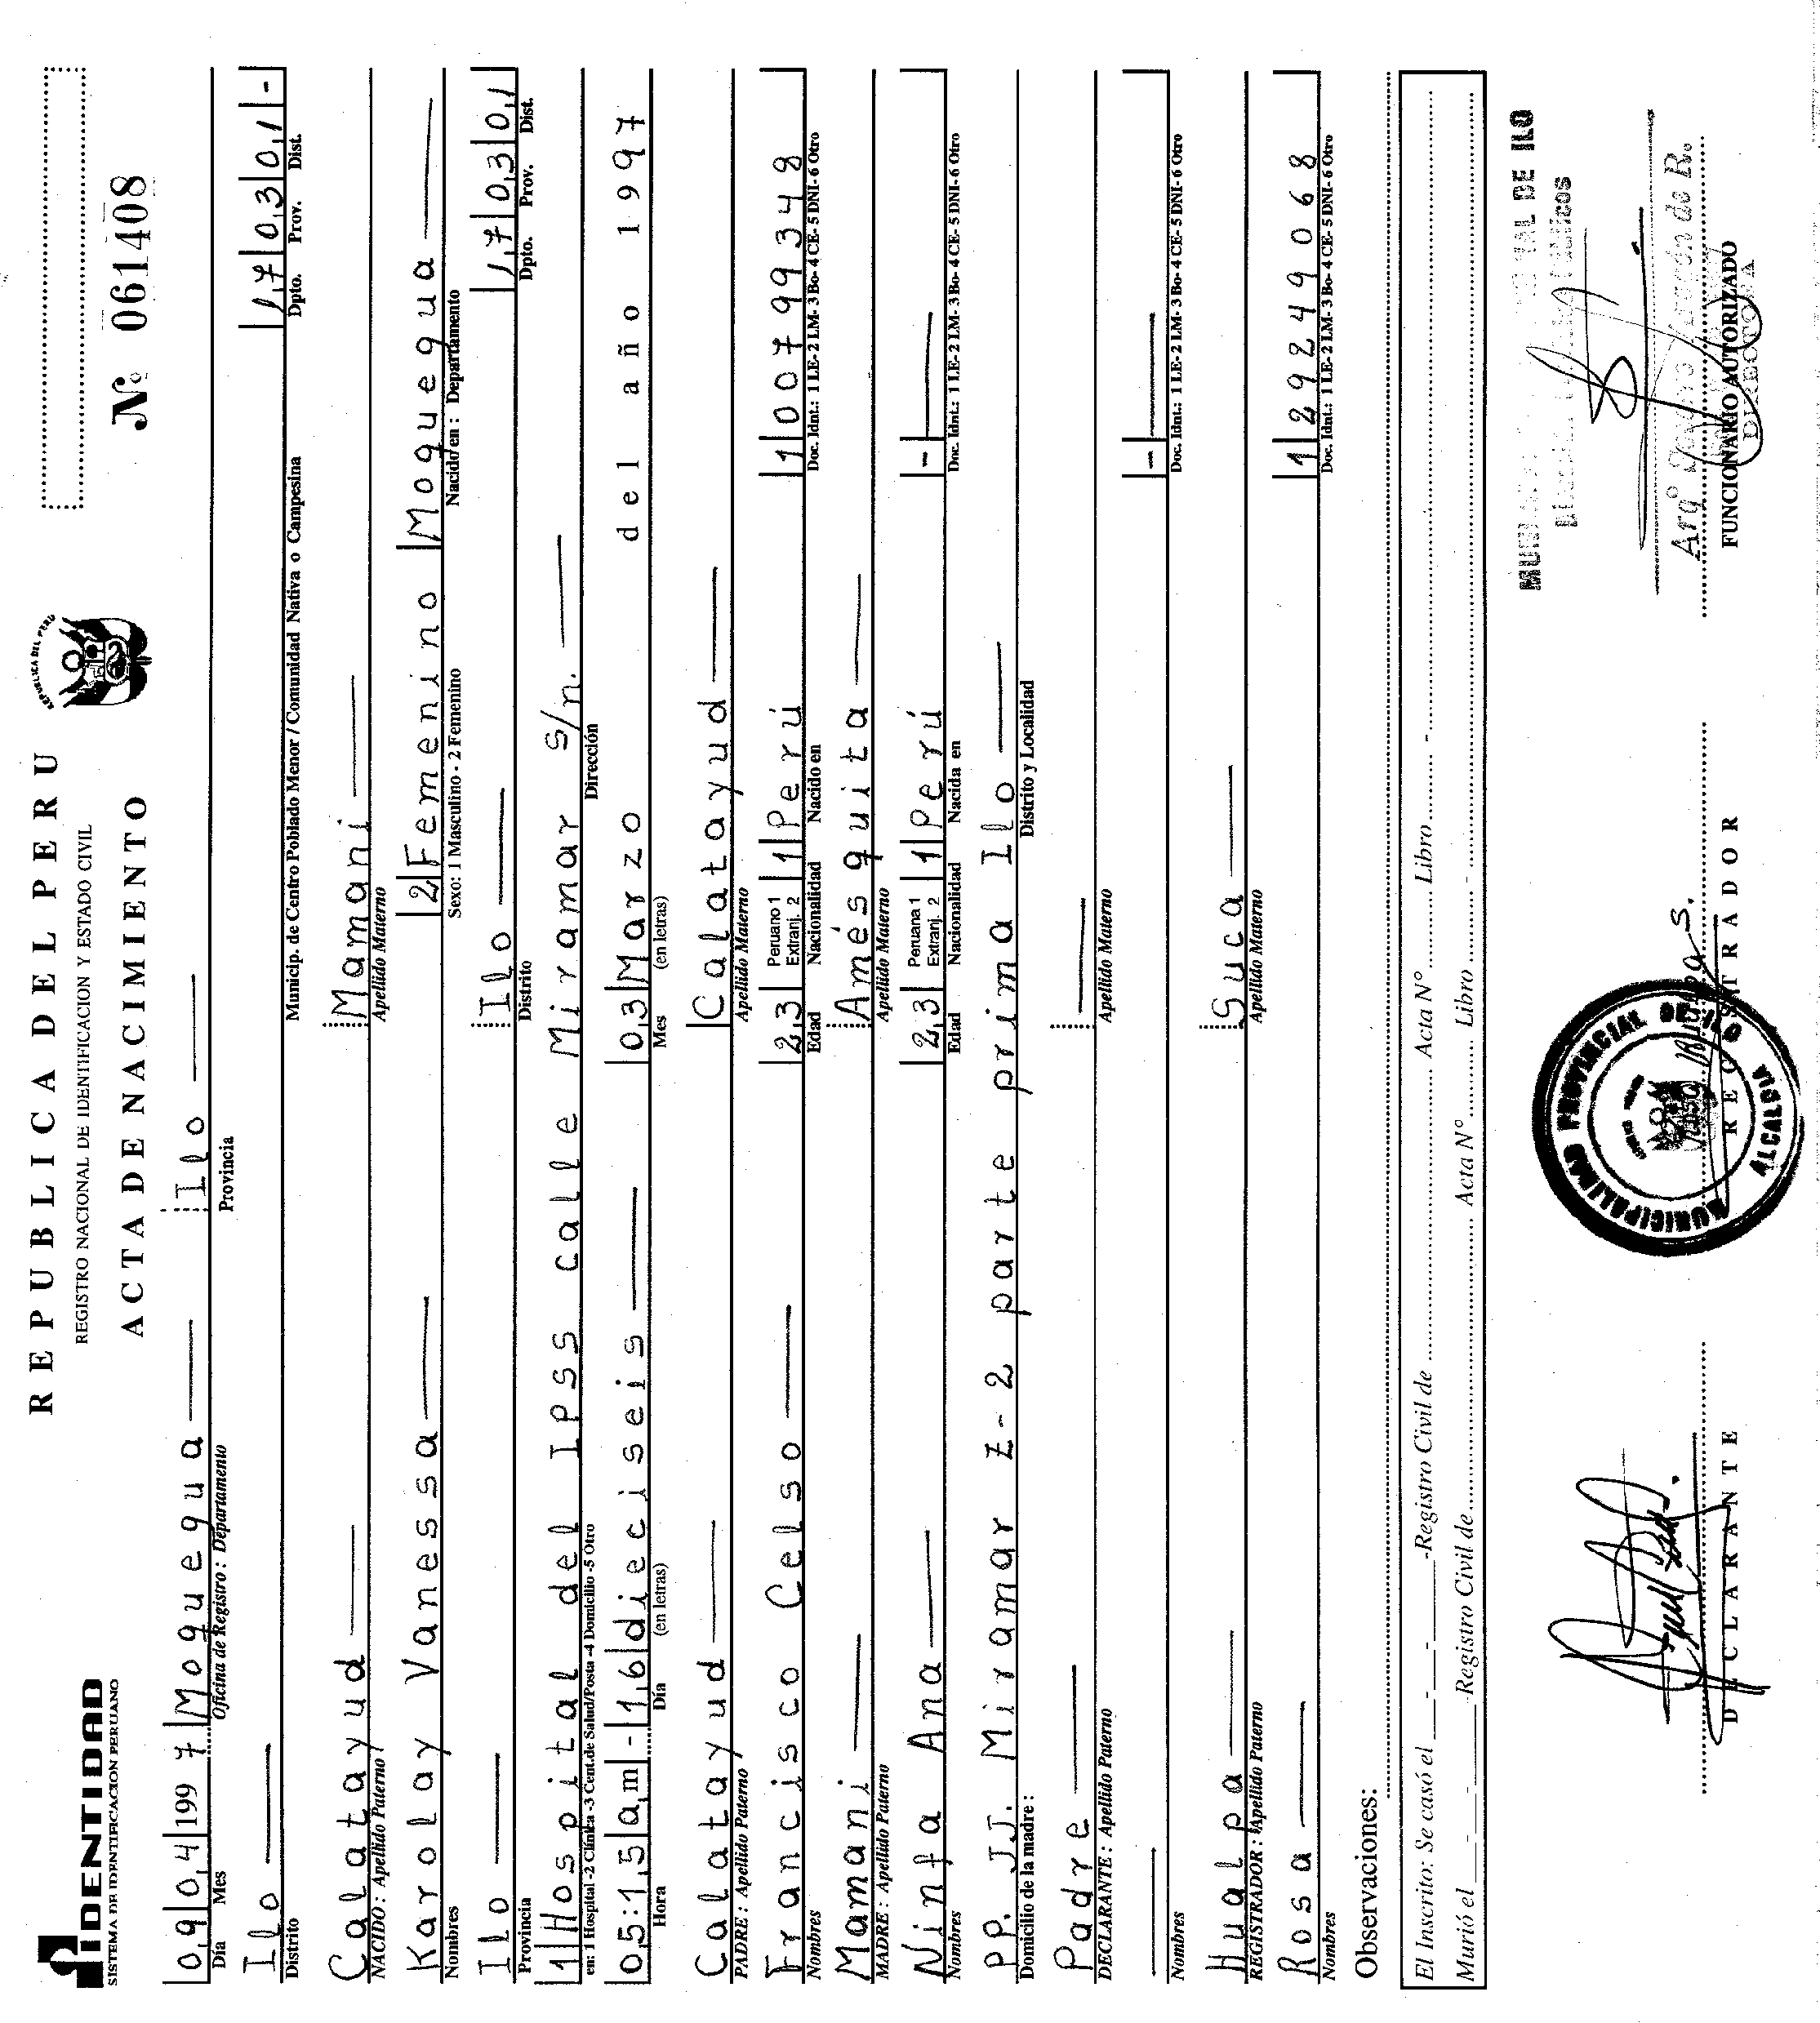 IDENTIDAD
SISTEMA DE IDENTIFICACION PERUANO
REPUBLICA DEL PERU
REGISTRO NACIONAL DE IDENTIFICACION Y ESTADO CIVIL
ACTA DE NACIMIENTO
REPUBLICA DEL PERU
Nº 061408
09 04 1997 Moquegua Ilo
Día Mes Oficina de Registro : Departamento Provincia
Ilo 17 03 01 -
Distrito Municip. de Centro Poblado Menor / Comunidad Nativa o Campesina Dpto. Prov. Dist.
Calatayud Mamani
NACIDO : Apellido Paterno Apellido Materno
Karolay Vanessa 2 Femenino Moquegua
Nombres Sexo: 1 Masculino - 2 Femenino Nacido en : Departamento
Ilo Ilo 17 03 01
Provincia Distrito Dpto. Prov. Dist.
1 Hospital del IPSS calle Miramar s/n.
en: 1 Hospital -2 Clínica -3 Cent.de Salud/Posta -4 Domicilio -5 Otro Dirección
05:15 am - 16 dieciseis 03 Marzo del año 1997
Hora Día (en letras) Mes (en letras)
Calatayud Calatayud
PADRE : Apellido Paterno Apellido Materno
Francisco Celso 23 Peruano 1 Extranj. 2 1 Perú 1 00799348
Nombres Edad Nacionalidad Nacido en Doc. Idnt.: 1 LE- 2 LM- 3 Bo- 4 CE- 5 DNI- 6 Otro
Mamani Amésquita
MADRE : Apellido Paterno Apellido Materno
Ninfa Ana 23 Peruana 1 Extranj. 2 1 Perú -
Nombres Edad Nacionalidad Nacida en Doc. Idnt.: 1 LE- 2 LM- 3 Bo- 4 CE- 5 DNI- 6 Otro
PP. JJ. Miramar Z-2 parte prima Ilo
Domicilio de la madre : Distrito y Localidad
Padre
DECLARANTE : Apellido Paterno Apellido Materno
-
Nombres Doc. Idnt.: 1 LE- 2 LM- 3 Bo- 4 CE- 5 DNI- 6 Otro
Hualpa Suca
REGISTRADOR : Apellido Paterno Apellido Materno
Rosa 1 29249068
Nombres Doc. Idnt.: 1 LE- 2 LM- 3 Bo- 4 CE- 5 DNI- 6 Otro
Observaciones:
El Inscrito: Se casó el - - - Registro Civil de Acta N° Libro -
Murió el - - Registro Civil de Acta N° Libro -
MUNICIPALIDAD PROVINCIAL DE ILO
ALCALDIA
DE ILO
Arqº
de R.
DIRECTORA
DECLARANTE
REGISTRADOR
FUNCIONARIO AUTORIZADO